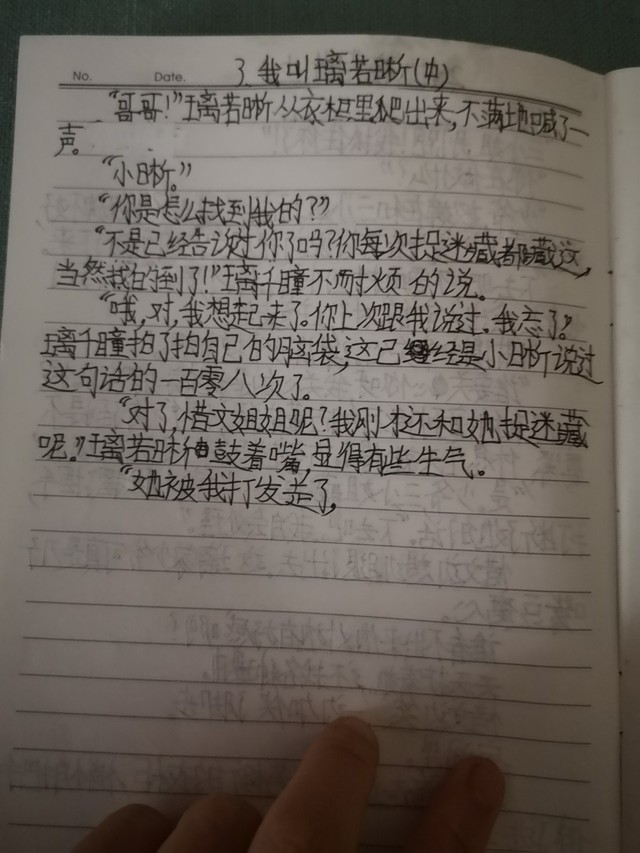 No. Date. 3.我叫璃若晰(中)
“哥哥!”璃若晰从衣柜里爬出来,不满地喊了一
声。
“小晰。”
“你是怎么找到我的?”
“不是已经告诉过你了吗?你每次捉迷藏都藏这,
当然找的到了!”璃千瞳不耐烦的说。
“哦,对,我想起来了。你上次跟我说过.我忘了”
璃千瞳拍了拍自己的脑袋,这已经是小晰说过
这句话的一百零八次了。
“对了,惜文姐姐呢?我刚才还和她捉迷藏
呢。”璃若晰鼓着嘴,显得有些生气。
“她被我打发走了,